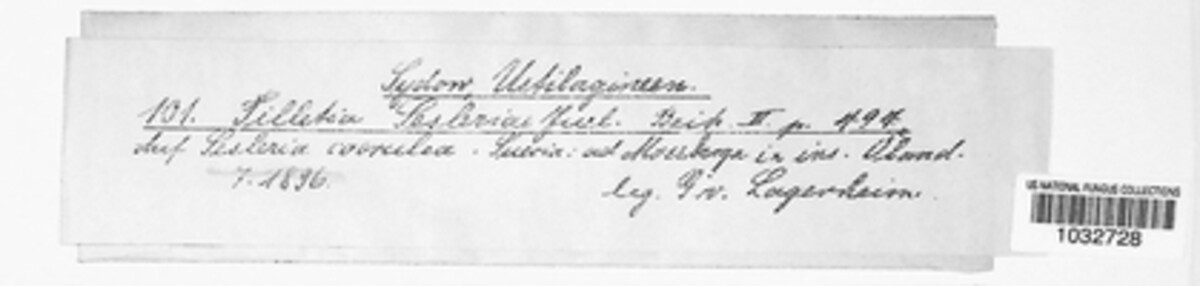 Sydow, Ustilagineen.
101. Tilletia Sesleriae Juel. Beitr. II p. 494.
Auf Sesleria coerulea. Suecia: ad Moerbyga in ins. Öland.
7. 1896.
leg. G. v. Lagerheim.
US NATIONAL FUNGUS COLLECTIONS
1032728